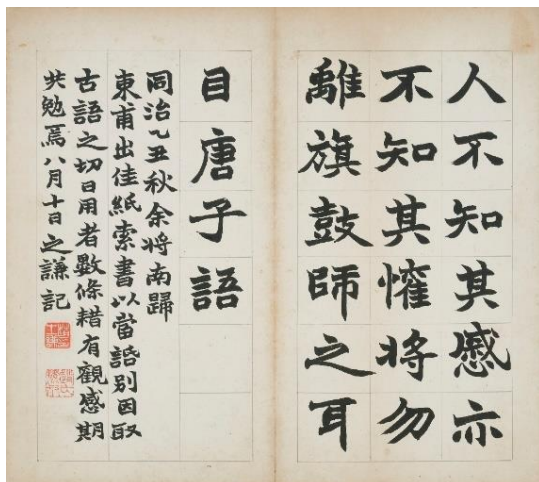 人不知其慼亦
不知其懽將勿
離旗鼓師之耳
目唐子語
同治乙丑秋余將南歸
東甫出佳紙索書以當話别因取
古語之切日用者數條耤有觀感期
共勉焉八月十日之謙記